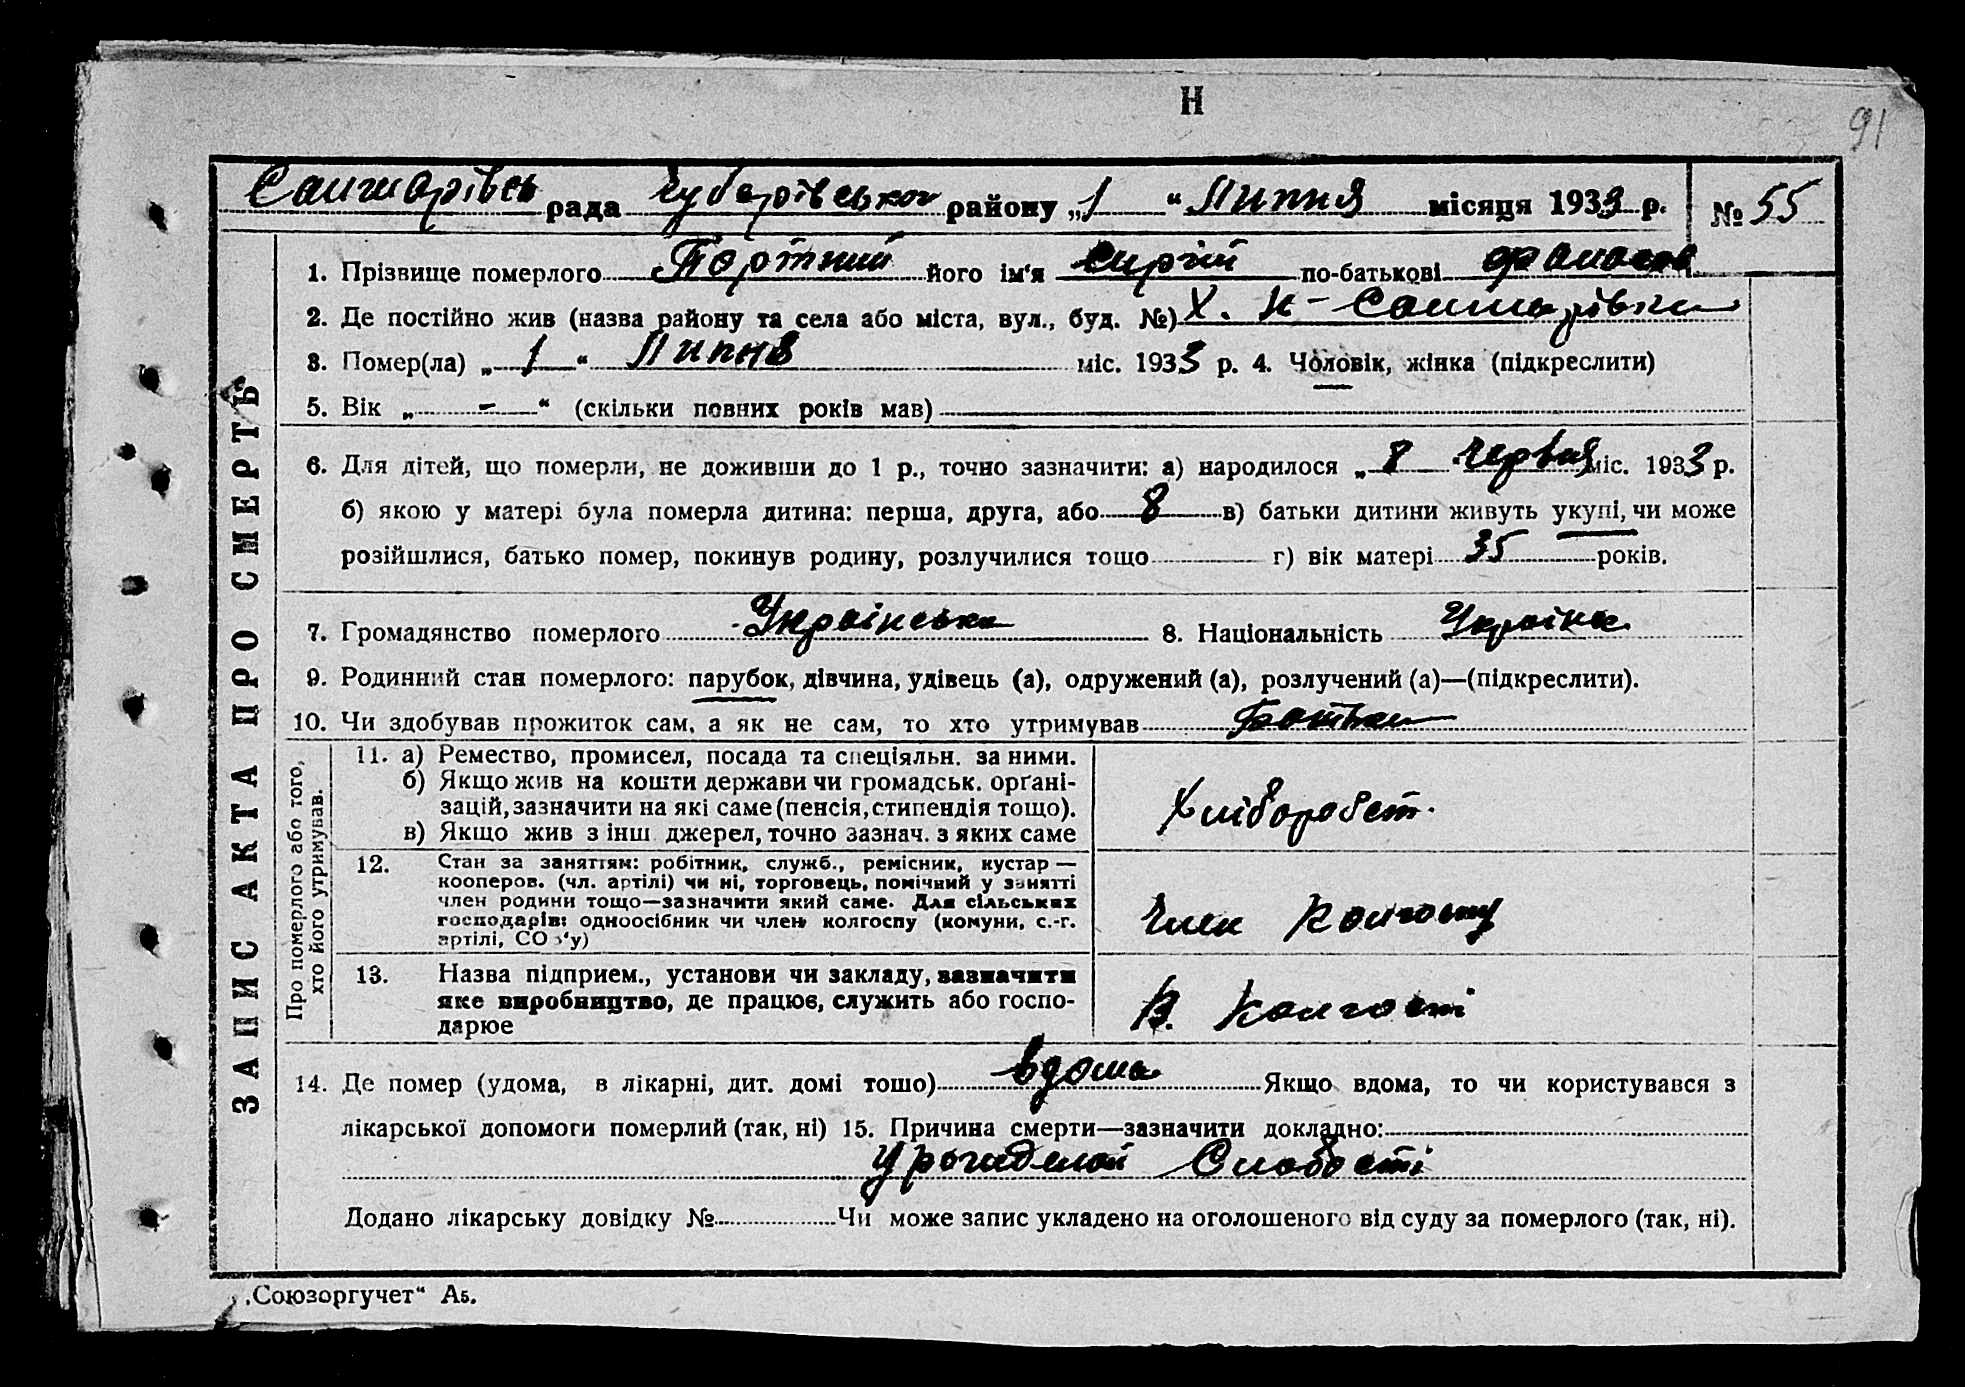 Н
91
Санжарівсь рада Чубарівського району „1“ Липня місяця 1933 р. № 55
ЗАПИС АКТА ПРО СМЕРТЬ
1. Прізвище померлого Портний його ім'я Сиргій по-батькові
2. Де постійно жив (назва району та села або міста, вул., буд. №) Х. Н-Санжарівка
3. Помер(ла) „1“ Липня міс. 1933 р. 4. Чоловік, жінка (підкреслити)
5. Вік „-“ (скільки повних років мав)
6. Для дітей, що померли, не доживши до 1 р., точно зазначити: а) народилося „8 Червня міс. 1933 р.
б) якою у матері була померла дитина: перша, друга, або 8 в) батьки дитини живуть укупі, чи може
розійшлися, батько помер, покинув родину, розлучилися тощо г) вік матері 35 років.
7. Громадянство померлого Українська 8. Національність Українс
9. Родинний стан померлого: парубок, дівчина, удівець (а), одружений (а), розлучений (а)—(підкреслити).
10. Чи здобував прожиток сам, а як не сам, то хто утримував Батьки
Про померлого або того,
хто його утримував.
11. а) Ремество, промисел, посада та спеціяльн. за ними.
б) Якщо жив на кошти держави чи громадськ. орґані-
зацій, зазначити на які саме (пенсія, стипендія тощо).
в) Якщо жив з інш. джерел, точно зазнач. з яких саме
Хліборобст.
12. Стан за заняттям: робітник, служб., ремісник, кустар —
кооперов. (чл. артілі) чи ні, торговець, помічний у занятті
член родини тощо—зазначити який саме. Для сільських
господарів: одноосібник чи член колгоспу (комуни, с.-г.
артілі, СО з'у)
Член Колгоспу
13. Назва підприєм., установи чи закладу, зазначити
яке виробництво, де працює, служить або госпо-
дарює
В. Колгоспі
14. Де помер (удома, в лікарні, дит. домі тощо) вдома Якщо вдома, то чи користувався з
лікарської допомоги померлий (так, ні) 15. Причина смерти—зазначити докладно:
Слабості
Додано лікарську довідку № Чи може запис укладено на оголошеного від суду за померлого (так, ні).
„Союзоргучет“ А5.